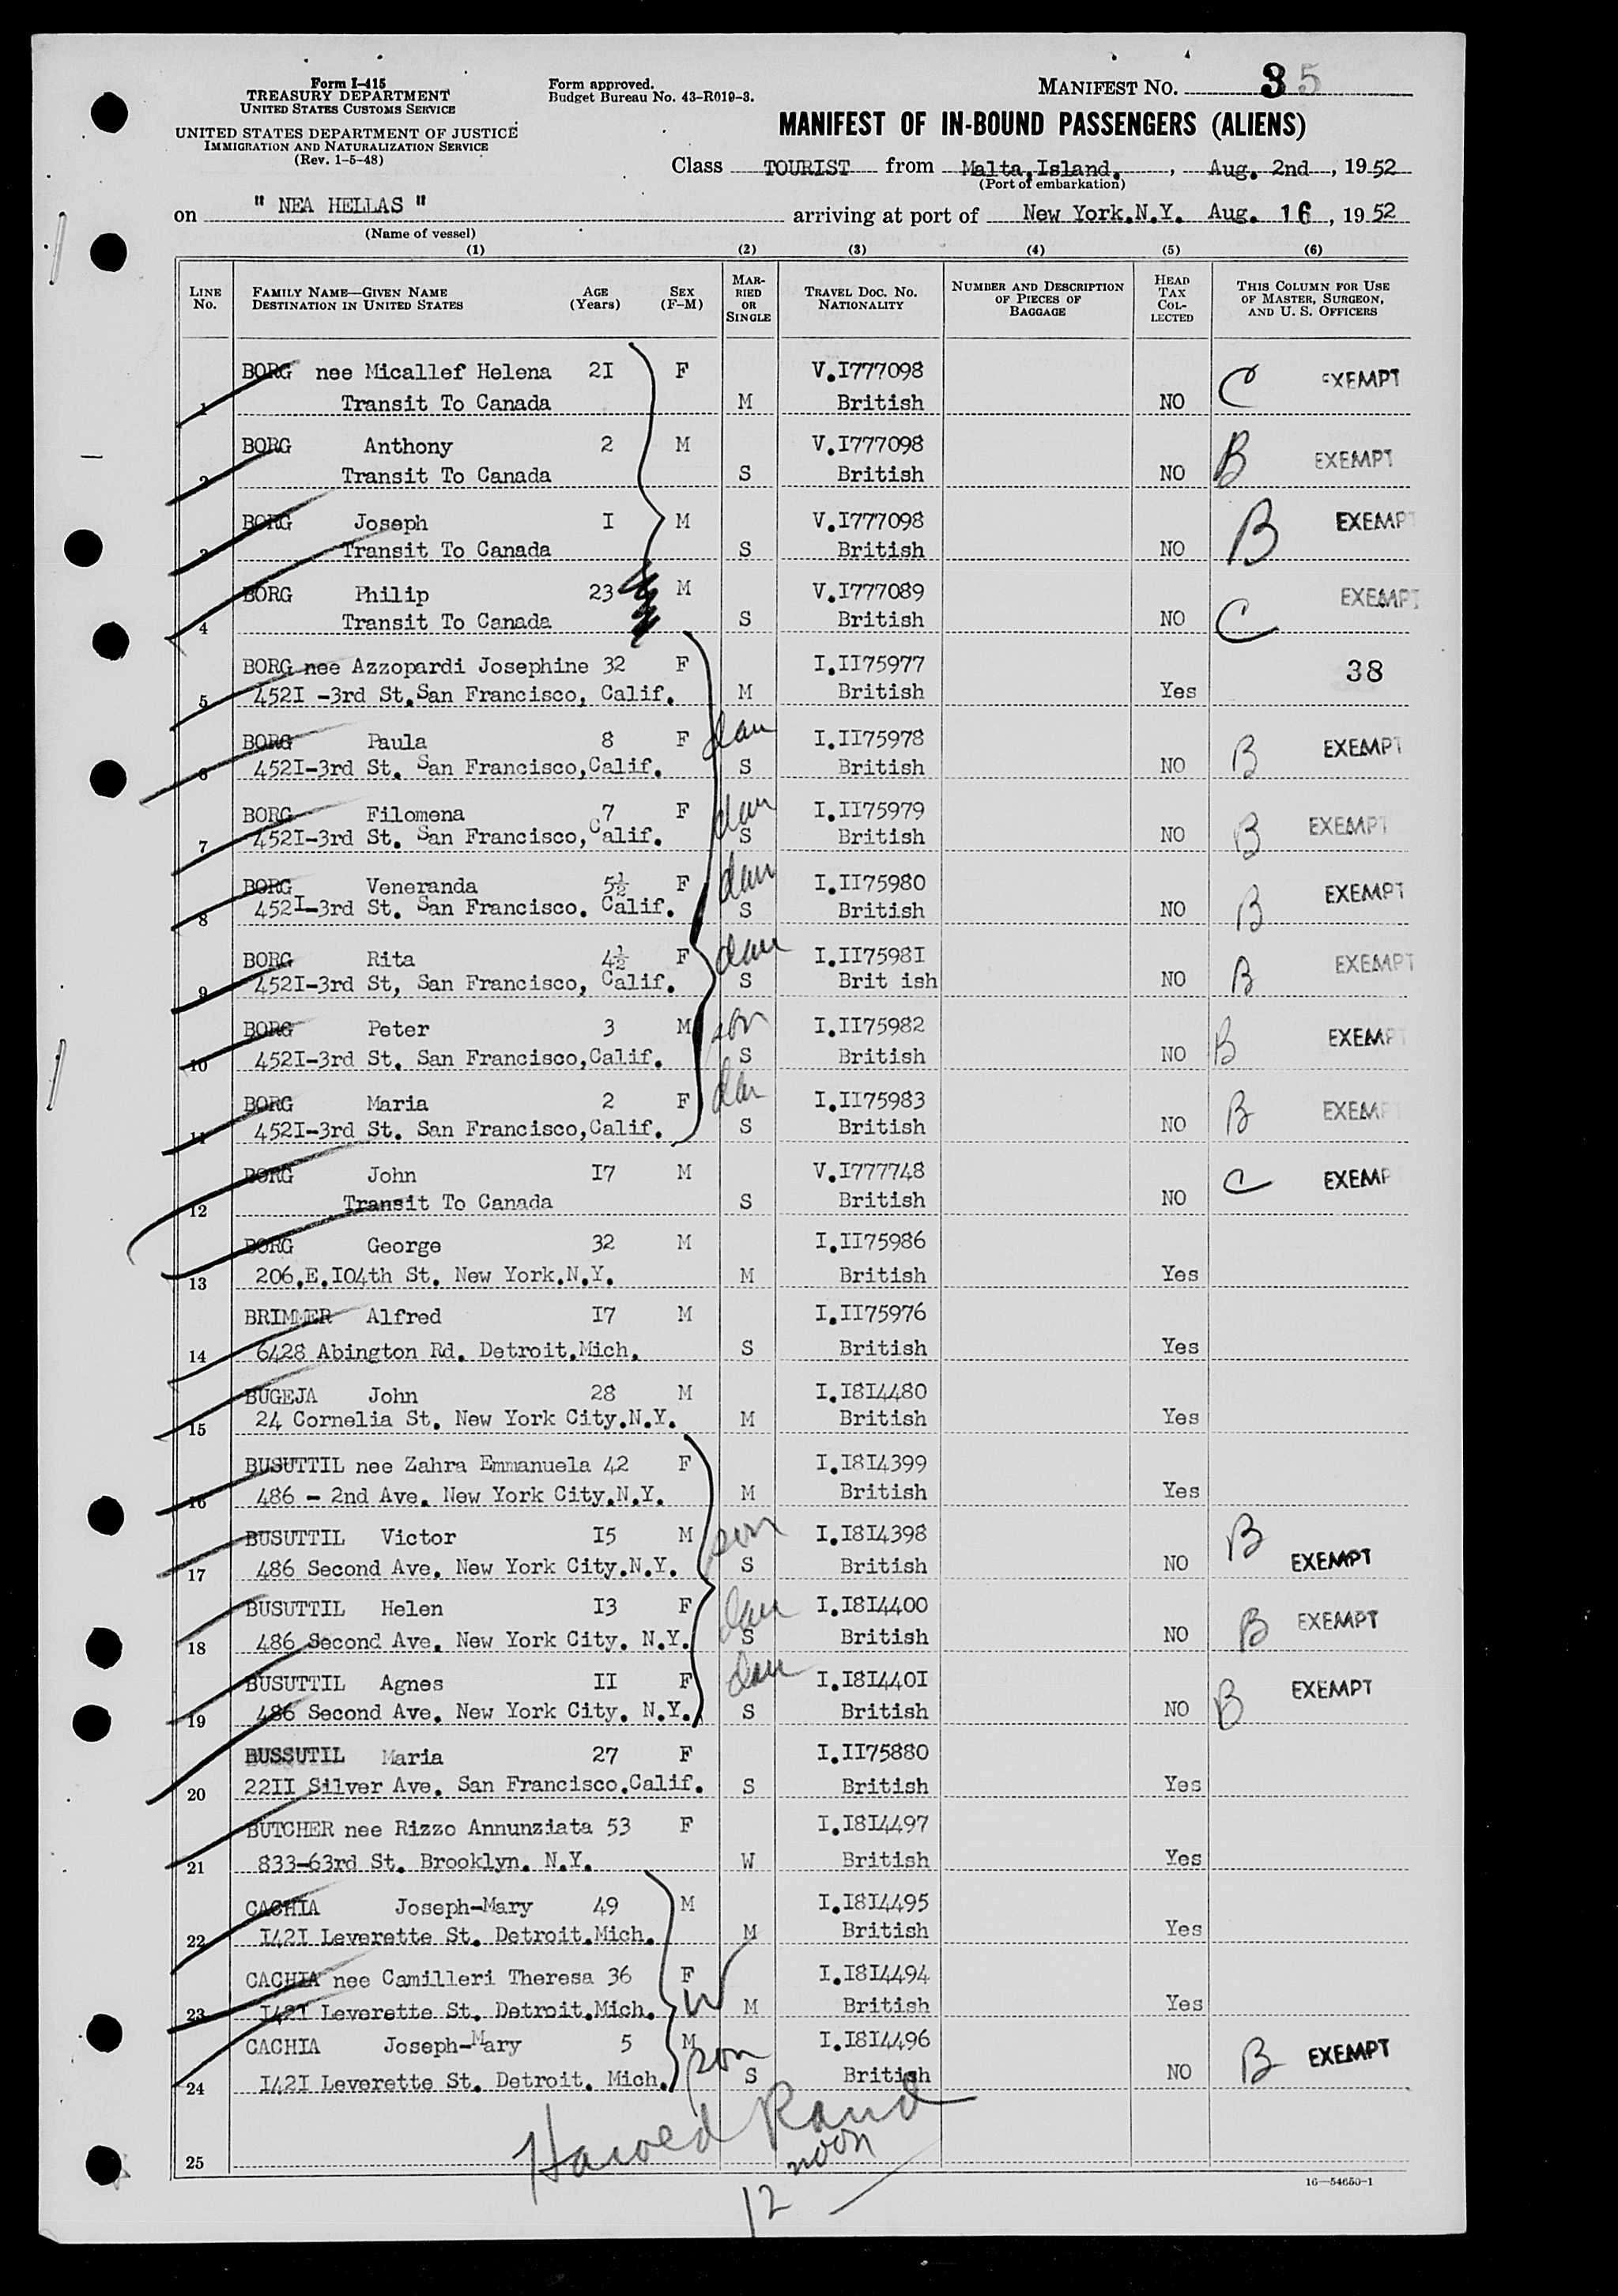 Form I-415
TREASURY DEPARTMENT
UNITED STATES CUSTOMS SERVICE
UNITED STATES DEPARTMENT OF JUSTICE
IMMIGRATION AND NATURALIZATION SERVICE
(Rev. 1-5-48)
Form approved.
Budget Bureau No. 43-R019-3.
MANIFEST NO. 35
MANIFEST OF IN-BOUND PASSENGERS (ALIENS)
Class TOURIST from Malta,Island, , Aug. 2nd , 1952
(Port of embarkation)
on " NEA HELLAS " arriving at port of New York.N.Y. Aug. 16 , 1952
(Name of vessel)
(1) (2) (3) (4) (5) (6)
LINE No. FAMILY NAME—GIVEN NAME DESTINATION IN UNITED STATES AGE (Years) SEX (F–M) MARRIED OR SINGLE TRAVEL DOC. NO. NATIONALITY NUMBER AND DESCRIPTION OF PIECES OF BAGGAGE HEAD TAX COLLECTED THIS COLUMN FOR USE OF MASTER, SURGEON, AND U. S. OFFICERS
BORG nee Micallef Helena 2I F V.I777098 C EXEMPT
1 Transit To Canada M British NO
BORG Anthony 2 M V.I777098 B EXEMPT
2 Transit To Canada S British NO
BORG Joseph I M V.I777098 B EXEMPT
3 Transit To Canada S British NO
BORG Philip 23 M V.I777089 C EXEMPT
4 Transit To Canada S British NO
BORG nee Azzopardi Josephine 32 F I.II75977 38
5 452I -3rd St.San Francisco, Calif. M British Yes
BORG Paula 8 F dau I.II75978 B EXEMPT
6 452I-3rd St. San Francisco,Calif. S British NO
BORG Filomena 7 F dau I.II75979 B EXEMPT
7 452I-3rd St. San Francisco,Calif. S British NO
BORG Veneranda 5½ F dau I.II75980 B EXEMPT
8 452I-3rd St. San Francisco. Calif. S British NO
BORG Rita 4½ F dau I.II7598I B EXEMPT
9 452I-3rd St, San Francisco, Calif. S Brit ish NO
BORG Peter 3 M son I.II75982 B EXEMPT
10 452I-3rd St. San Francisco,Calif. S British NO
BORG Maria 2 F dau I.II75983 B EXEMPT
11 452I-3rd St. San Francisco,Calif. S British NO
BORG John I7 M V.I777748 C EXEMPT
12 Transit To Canada S British NO
BORG George 32 M I.II75986
13 206.E.I04th St. New York.N.Y. M British Yes
BRIMMER Alfred I7 M I.II75976
14 6428 Abington Rd. Detroit.Mich. S British Yes
BUGEJA John 28 M I.I8I4480
15 24 Cornelia St. New York City.N.Y. M British Yes
BUSUTTIL nee Zahra Emmanuela 42 F I.I8I4399
16 486 - 2nd Ave. New York City.N.Y. M British Yes
BUSUTTIL Victor I5 M son I.I8I4398 B
17 486 Second Ave. New York City.N.Y. S British NO EXEMPT
BUSUTTIL Helen I3 F dau I.I8I4400 B EXEMPT
18 486 Second Ave. New York City. N.Y. S British NO
BUSUTTIL Agnes II F dau I.I8I440I B EXEMPT
19 486 Second Ave. New York City. N.Y. S British NO
BUSSUTIL Maria 27 F I.II75880
20 22II Silver Ave. San Francisco.Calif. S British Yes
BUTCHER nee Rizzo Annunziata 53 F I.I8I4497
21 833-63rd St. Brooklyn. N.Y. W British Yes
CACHIA Joseph-Mary 49 M I.I8I4495
22 I42I Leverette St. Detroit.Mich. M British Yes
CACHIA nee Camilleri Theresa 36 F W I.I8I4494
23 I42I Leverette St. Detroit.Mich. M British Yes
CACHIA Joseph-Mary 5 M son I.I8I4496 B EXEMPT
24 I42I Leverette St. Detroit. Mich. S British NO
Harold Rand
25
12 noon
16—54650-1